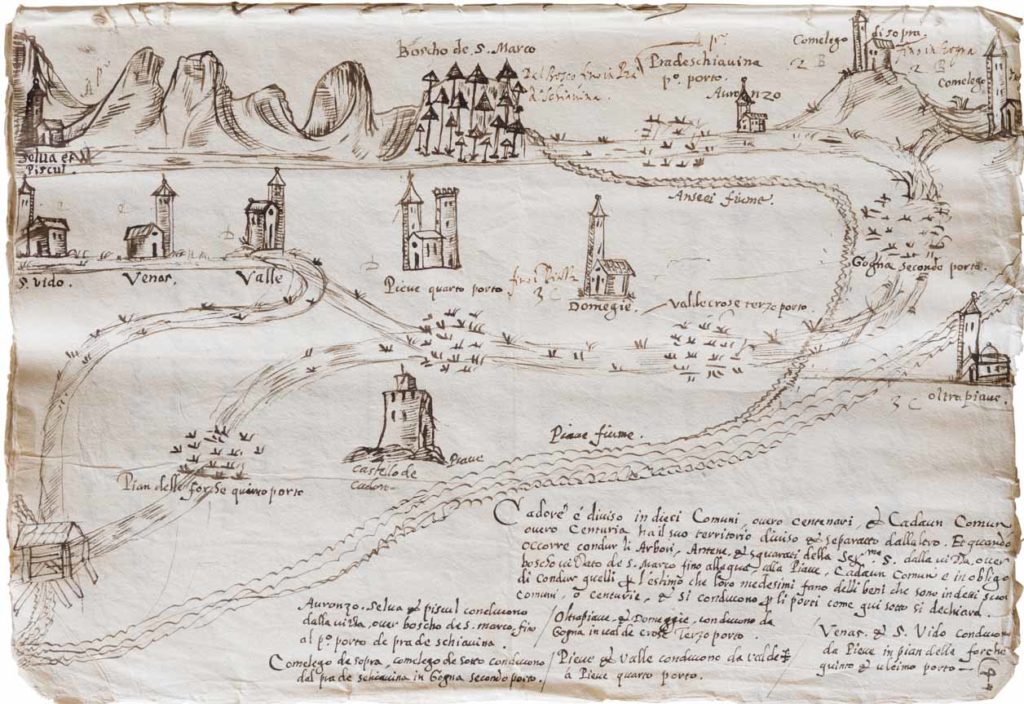 Boscho de S. Marco
Pradeschiauina
pº. porto.
Auronzo
Comelego
di sopra
2 B
Comelego
2 B
Selua et
Piscul.
Anseei fiume.
S. Vido.
Venas.
Valle
Pieue quarto porto
3 C
Domegie.
Valdecrose terzo porto
Gogna secondo porto.
oltrapiaue.
3 C
Castello de
Cador
Piaue
Piaue fiume.
Pian delle forche quinto porto
Cadore é diuiso in dieci Comuni, ouero centenari, & Cadaun Comun
ouero Centuria ha il suo territorio diuiso & separatto dall'altro. Et quando
occorre condur li Arbori, Antene, & squarati della Ser.ma S. dalla uizza, ouer
boscho uizzato de S. Marco fino all'aqua, alla Piaue, Cadaun Comun e in obligo
di condur quelli l'estimo che loro medesimi fano delli beni che sono in
comuni, o centurie, & si conducono li porti come qui sotto si dechiara.
Auronzo. Selua & piscul conducono
dalla uizza, ouer boscho de S. marco, fino
al pº. porto de pra de schiauina
Comelego de sopra, comelego de sotto conducono
dal pra de schiauina in Gogna secondo porto.
Oltrapiaue, & Domeggie, conducono da
Gogna in ual de crose Terzo porto.
Pieue & Valle conducono da valde
à Pieue quarto porto.
Venas, & S. Vido conducono
da Pieue in pian delle forche
quinto & ultimo porto